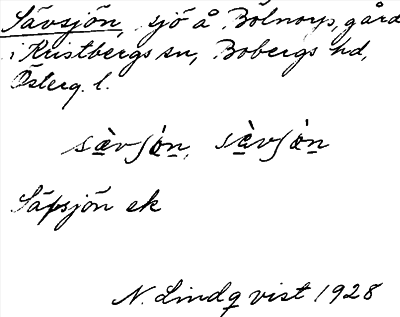 Sävsjön, sjö å Bölnorp, gård
i Kristbergs sn, Bobergs hd,
Österg. l.
sɛ̀vʃǿn, sɛ̀vʃǿn
Säfsjön ek
N. Lindqvist 1928